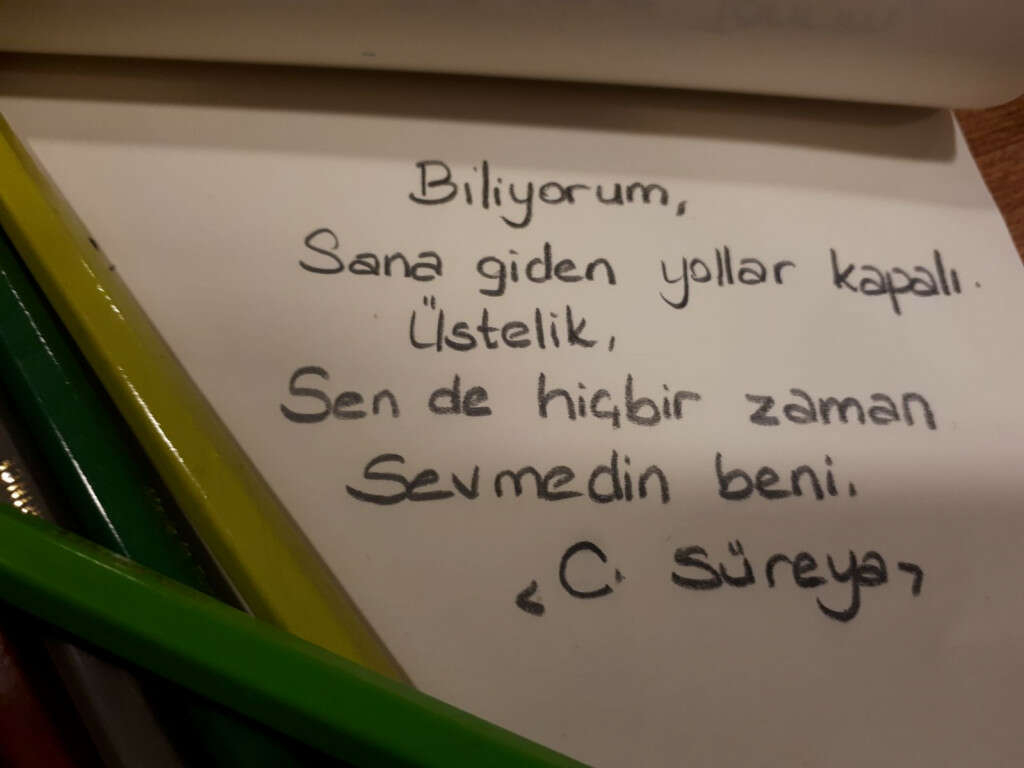 Biliyorum,
Sana giden yollar kapalı.
Üstelik,
Sen de hiçbir zaman
Sevmedin beni.
< C. Süreya >